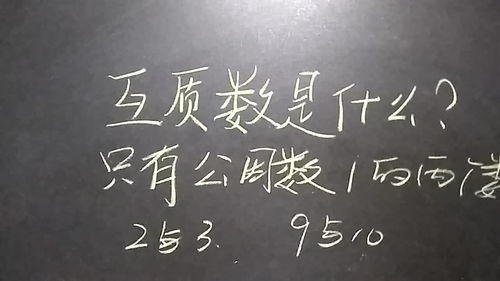 互质数是什么?
只有公因数1的两数
2与3. 9与10